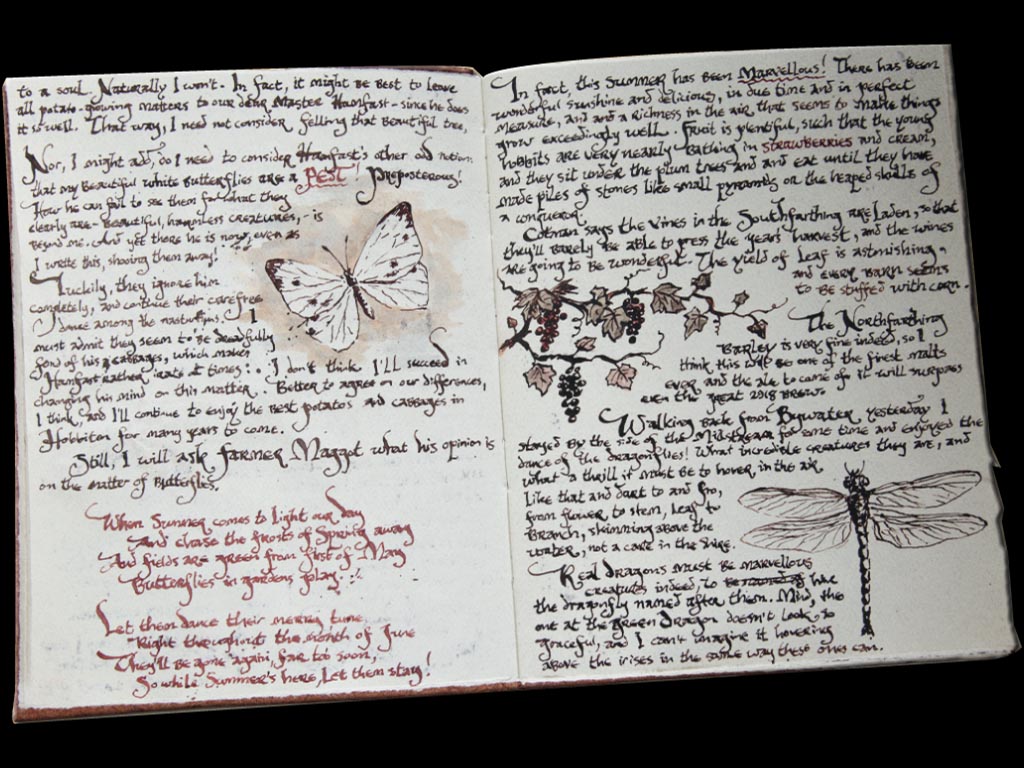 to a soul. Naturally I won't. In fact, it might be best to leave
all potato-growing matters to our dear Master Hamfast - since he does
it so well. That way, I need not consider felling that beautiful tree,
Nor, I might add, do I need to consider Hamfast's other odd notion
that my beautiful white butterflies are a PEST! Preposterous!
How he can fail to see them for what they
clearly are - beautiful, harmless creatures, - is
beyond me. And yet there he is now, even as
I write this, shooing them away!
Luckily, they ignore him
completely, and continue their carefree
dance among the nasturtiums. I
must admit they seem to be dreadfully
fond of his cabbages, which makes
Hamfast rather irate at times: . I don't think I'll succeed in
changing his mind on this matter. Better to agree on our differences,
I think, and I'll continue to enjoy the best potatos and cabbages in
Hobbiton for many years to come.
Still, I will ask Farmer Maggot what his opinion is
on the matter of butterflies.
When Summer comes to light our day
And chase the frosts of Spring away
And fields are green from first of May
Butterflies in gardens play.
Let them dance their merry tune
Right throughout the month of June
They'll be gone again, far too soon,
So while Summer's here, let them stay!
In fact, this Summer has been Marvellous! There has been
wonderful sunshine and delicious, in due time and in perfect
measure, and and a richness in the air that seems to make things
grow exceedingly well. Fruit is plentiful, such that the young
hobbits are very nearly bathing in strawberries and cream,
and they sit under the plum trees and and eat until they have
made piles of stones like small pyramids or the heaped skulls of
a conqueror.
Cotman says the vines in the Southfarthing are laden, so that
they'll barely be able to press the years' harvest, and the wines
are going to be wonderful. The yield of leaf is astonishing -
and every barn seems
to be stuffed with corn.
The Northfarthing
barley is very fine indeed, so I
think this will be one of the finest malts
ever and the ale to come of it will surpass
even the great 2918 brew.
Walking back from Bywater yesterday I
stayed by the side of the Midstream for some time and enjoyed the
dance of the dragonflies! What incredible creatures they are, and
what a thrill it must be to hover, in the air,
like that and dart to and fro,
from flower, to stem, leaf to
branch, skimming above the
water, not a care in the Shire.
Real dragons must be marvellous
creatures indeed to have
the dragonfly named after them. Mind, the
one at the Green Dragon doesn't look so
graceful, and I can't imagine it hovering
above the irises in the same way these ones can.